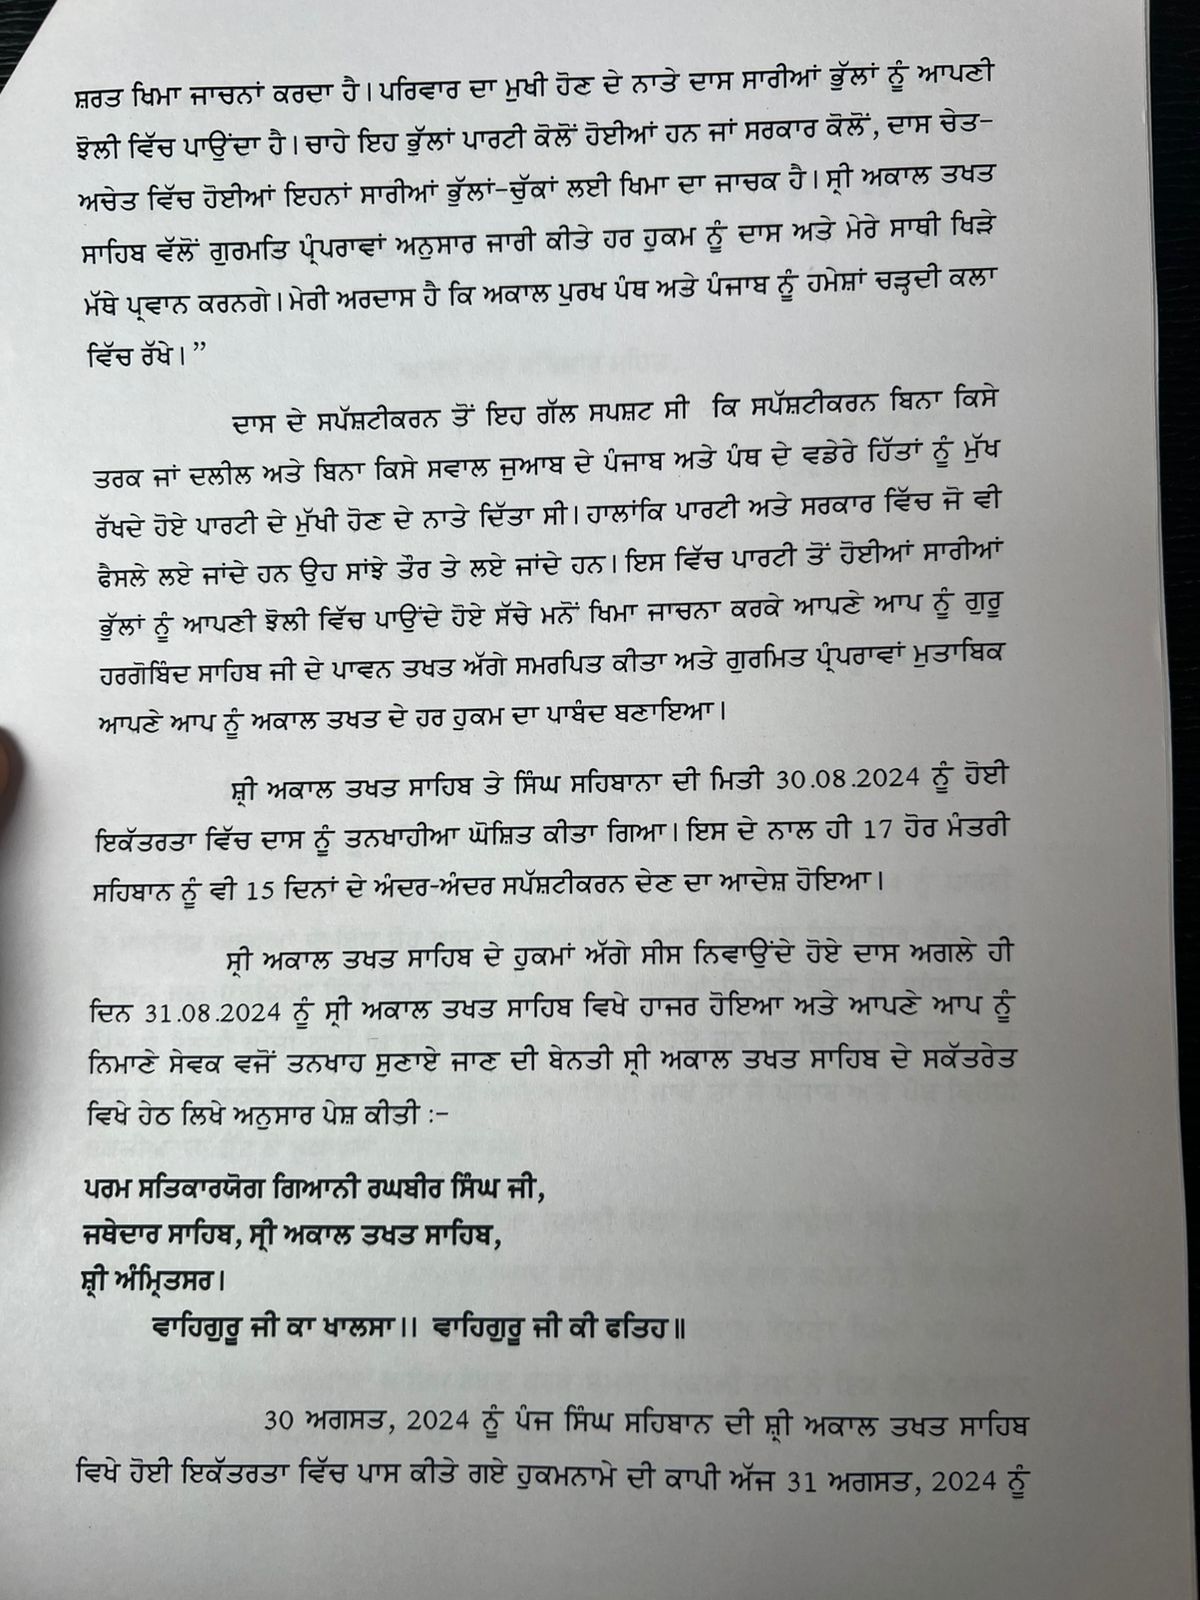 ਸ਼ਰਤ ਖਿਮਾ ਜਾਚਨਾਂ ਕਰਦਾ ਹੈ। ਪਰਿਵਾਰ ਦਾ ਮੁਖੀ ਹੋਣ ਦੇ ਨਾਤੇ ਦਾਸ ਸਾਰੀਆਂ ਭੁੱਲਾਂ ਨੂੰ ਆਪਣੀ
ਝੋਲੀ ਵਿੱਚ ਪਾਉਂਦਾ ਹੈ। ਚਾਹੇ ਇਹ ਭੁੱਲਾਂ ਪਾਰਟੀ ਕੋਲੋਂ ਹੋਈਆਂ ਹਨ ਜਾਂ ਸਰਕਾਰ ਕੋਲੋਂ, ਦਾਸ ਚੇਤ-
ਅਚੇਤ ਵਿੱਚ ਹੋਈਆਂ ਇਹਨਾਂ ਸਾਰੀਆਂ ਭੁੱਲਾਂ-ਚੁੱਕਾਂ ਲਈ ਖਿਮਾ ਦਾ ਜਾਚਕ ਹੈ। ਸ੍ਰੀ ਅਕਾਲ ਤਖਤ
ਸਾਹਿਬ ਵੱਲੋਂ ਗੁਰਮਤਿ ਪ੍ਰੰਪਰਾਵਾਂ ਅਨੁਸਾਰ ਜਾਰੀ ਕੀਤੇ ਹਰ ਹੁਕਮ ਨੂੰ ਦਾਸ ਅਤੇ ਮੇਰੇ ਸਾਥੀ ਖਿੜੇ
ਮੱਥੇ ਪ੍ਰਵਾਨ ਕਰਨਗੇ। ਮੇਰੀ ਅਰਦਾਸ ਹੈ ਕਿ ਅਕਾਲ ਪੁਰਖ ਪੰਥ ਅਤੇ ਪੰਜਾਬ ਨੂੰ ਹਮੇਸ਼ਾਂ ਚੜ੍ਹਦੀ ਕਲਾ
ਵਿੱਚ ਰੱਖੇ। ”
ਦਾਸ ਦੇ ਸਪੱਸ਼ਟੀਕਰਨ ਤੋਂ ਇਹ ਗੱਲ ਸਪਸ਼ਟ ਸੀ ਕਿ ਸਪੱਸ਼ਟੀਕਰਨ ਬਿਨਾ ਕਿਸੇ
ਤਰਕ ਜਾਂ ਦਲੀਲ ਅਤੇ ਬਿਨਾ ਕਿਸੇ ਸਵਾਲ ਜੁਆਬ ਦੇ ਪੰਜਾਬ ਅਤੇ ਪੰਥ ਦੇ ਵਡੇਰੇ ਹਿੱਤਾਂ ਨੂੰ ਮੁੱਖ
ਰੱਖਦੇ ਹੋਏ ਪਾਰਟੀ ਦੇ ਮੁੱਖੀ ਹੋਣ ਦੇ ਨਾਤੇ ਦਿੱਤਾ ਸੀ। ਹਾਲਾਂਕਿ ਪਾਰਟੀ ਅਤੇ ਸਰਕਾਰ ਵਿੱਚ ਜੋ ਵੀ
ਫੈਸਲੇ ਲਏ ਜਾਂਦੇ ਹਨ ਉਹ ਸਾਂਝੇ ਤੌਰ ਤੇ ਲਏ ਜਾਂਦੇ ਹਨ। ਇਸ ਵਿੱਚ ਪਾਰਟੀ ਤੋਂ ਹੋਈਆਂ ਸਾਰੀਆਂ
ਭੁੱਲਾਂ ਨੂੰ ਆਪਣੀ ਝੋਲੀ ਵਿੱਚ ਪਾਉਂਦੇ ਹੋਏ ਸੱਚੇ ਮਨੋਂ ਖਿਮਾ ਜਾਚਨਾ ਕਰਕੇ ਆਪਣੇ ਆਪ ਨੂੰ ਗੁਰੂ
ਹਰਗੋਬਿੰਦ ਸਾਹਿਬ ਜੀ ਦੇ ਪਾਵਨ ਤਖਤ ਅੱਗੇ ਸਮਰਪਿਤ ਕੀਤਾ ਅਤੇ ਗੁਰਮਿਤ ਪ੍ਰੰਪਰਾਵਾਂ ਮੁਤਾਬਿਕ
ਆਪਣੇ ਆਪ ਨੂੰ ਅਕਾਲ ਤਖਤ ਦੇ ਹਰ ਹੁਕਮ ਦਾ ਪਾਬੰਦ ਬਣਾਇਆ।
ਸ਼੍ਰੀ ਅਕਾਲ ਤਖਤ ਸਾਹਿਬ ਤੇ ਸਿੰਘ ਸਹਿਬਾਨਾ ਦੀ ਮਿਤੀ 30.08.2024 ਨੂੰ ਹੋਈ
ਇਕੱਤਰਤਾ ਵਿੱਚ ਦਾਸ ਨੂੰ ਤਨਖਾਹੀਆ ਘੋਸ਼ਿਤ ਕੀਤਾ ਗਿਆ। ਇਸ ਦੇ ਨਾਲ ਹੀ 17 ਹੋਰ ਮੰਤਰੀ
ਸਹਿਬਾਨ ਨੂੰ ਵੀ 15 ਦਿਨਾਂ ਦੇ ਅੰਦਰ-ਅੰਦਰ ਸਪੱਸ਼ਟੀਕਰਨ ਦੇਣ ਦਾ ਆਦੇਸ਼ ਹੋਇਆ।
ਸ੍ਰੀ ਅਕਾਲ ਤਖਤ ਸਾਹਿਬ ਦੇ ਹੁਕਮਾਂ ਅੱਗੇ ਸੀਸ ਨਿਵਾਉਂਦੇ ਹੋਏ ਦਾਸ ਅਗਲੇ ਹੀ
ਦਿਨ 31.08.2024 ਨੂੰ ਸ੍ਰੀ ਅਕਾਲ ਤਖਤ ਸਾਹਿਬ ਵਿਖੇ ਹਾਜਰ ਹੋਇਆ ਅਤੇ ਆਪਣੇ ਆਪ ਨੂੰ
ਨਿਮਾਣੇ ਸੇਵਕ ਵਜੋਂ ਤਨਖਾਹ ਸੁਣਾਏ ਜਾਣ ਦੀ ਬੇਨਤੀ ਸ੍ਰੀ ਅਕਾਲ ਤਖਤ ਸਾਹਿਬ ਦੇ ਸਕੱਤਰੇਤ
ਵਿਖੇ ਹੇਠ ਲਿਖੇ ਅਨੁਸਾਰ ਪੇਸ਼ ਕੀਤੀ :-
ਪਰਮ ਸਤਿਕਾਰਯੋਗ ਗਿਆਨੀ ਰਘਬੀਰ ਸਿੰਘ ਜੀ,
ਜਥੇਦਾਰ ਸਾਹਿਬ, ਸ੍ਰੀ ਅਕਾਲ ਤਖਤ ਸਾਹਿਬ,
ਸ਼੍ਰੀ ਅੰਮ੍ਰਿਤਸਰ।
ਵਾਹਿਗੁਰੂ ਜੀ ਕਾ ਖਾਲਸਾ।। ਵਾਹਿਗੁਰੂ ਜੀ ਕੀ ਫਤਿਹ॥
30 ਅਗਸਤ, 2024 ਨੂੰ ਪੰਜ ਸਿੰਘ ਸਹਿਬਾਨ ਦੀ ਸ਼੍ਰੀ ਅਕਾਲ ਤਖਤ ਸਾਹਿਬ
ਵਿਖੇ ਹੋਈ ਇਕੱਤਰਤਾ ਵਿੱਚ ਪਾਸ ਕੀਤੇ ਗਏ ਹੁਕਮਨਾਮੇ ਦੀ ਕਾਪੀ ਅੱਜ 31 ਅਗਸਤ, 2024 ਨੂੰ